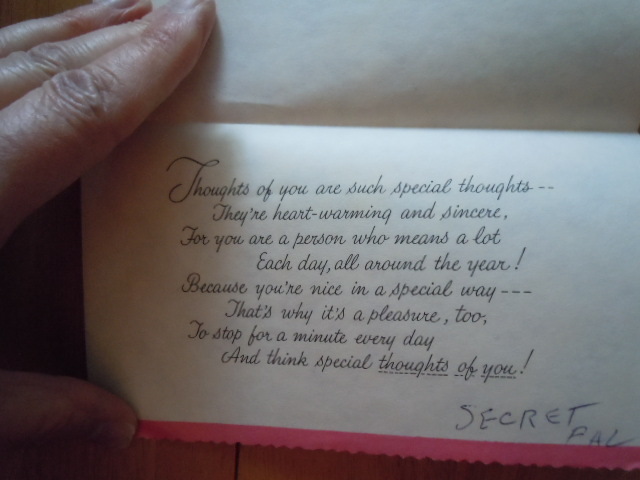 Thoughts of you are such special thoughts--
They're heart-warming and sincere,
For you are a person who means a lot
Each day, all around the year!
Because you're nice in a special way---
That's why it's a pleasure, too,
To stop for a minute every day
And think special thoughts of you!
SECRET
PAL